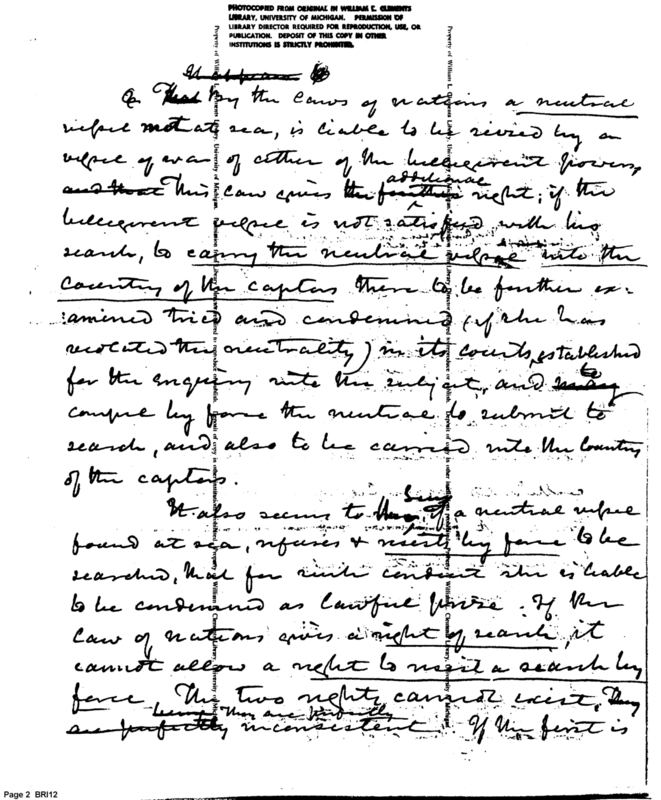 PHOTOCOPIED FROM ORIGINAL IN WILLIAM L. CLEMENTS
LIBRARY, UNIVERSITY OF MICHIGAN. PERMISSION OF
LIBRARY DIRECTOR REQUIRED FOR REPRODUCTION, USE, OR
PUBLICATION. DEPOSIT OF THIS COPY IN OTHER
INSTITUTIONS IS STRICTLY PROHIBITED.
By the laws of nations a neutral
vessel met at sea, is liable to be seized by a
vessel of war of either of the belligerent powers,
and that This law gives the further additional right; if the
belligerent vessel is not satisfied with his
search, to carry the neutral vessel into the
Country of the captors there to be further ex-
amined tried and condemned (if she has
violated the neutrality) in its courts, established
for the enquiry into the subject, and to
compel by force the neutral to submit to
search, and also to be carried into the Country
of the captors.
It also seems to if a neutral vessel
found at sea, refuses & resists by force to be
searched, that for such conduct she is liable
to be condemned as lawful prize. If the
Law of nations gives a right of search, it
cannot allow a right to resist a search by
force. The two rights cannot exist, They
being They are perfectly
are perfectly inconsistent. If the first is
Page 2 BRI12